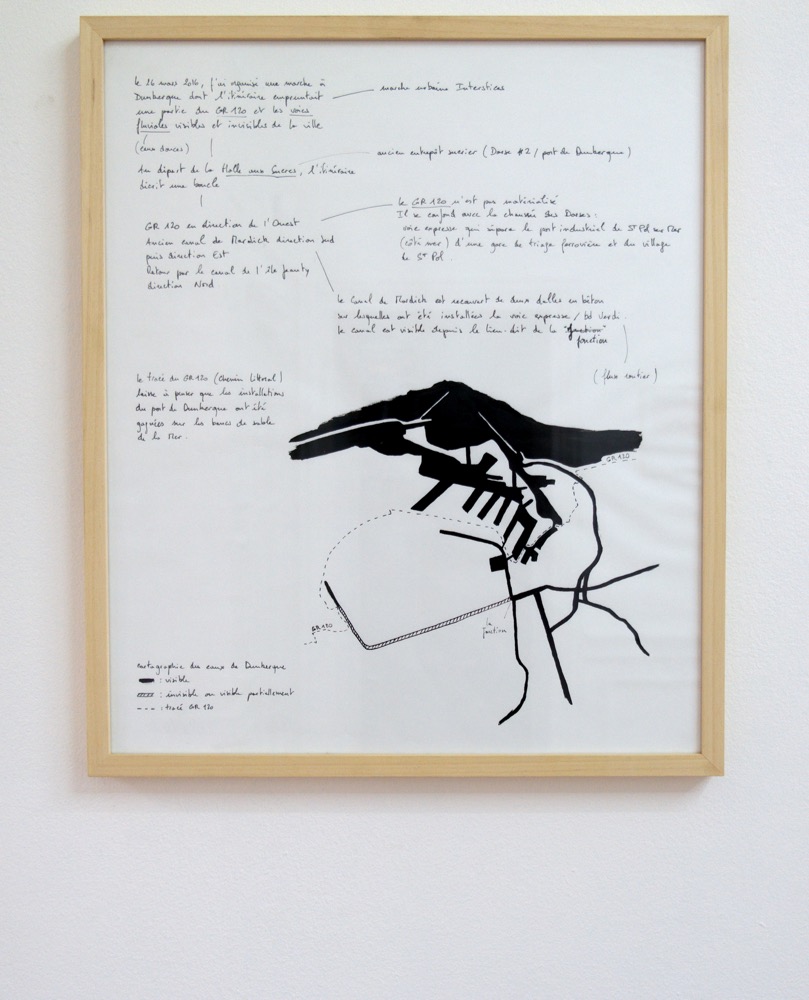 le 26 mars 2016, j'ai organisé une marche à
Dunkerque dont l'itinéraire empruntait
une partie du GR 120 et les voies
fluviales visibles et invisibles de la ville
(eaux douces)
marche urbaine Interstices
ancien entrepôt sucrier (Darse #2 / port de Dunkerque)
Au départ de la Halle aux Sucres, l'itinéraire
décrit une boucle
GR 120 en direction de l'Ouest
Ancien canal de Mardick direction Sud
puis direction Est
Retour par le canal de l'île Jeanty
direction Nord
le GR 120 n'est pas matérialisé
Il se confond avec la chaussée des Darses :
voie expresse qui sépare le port industriel de St Pol sur Mer
(côté mer) d'une gare de triage ferroviaire et du village
de St Pol.
le Canal de Mardick est recouvert de deux dalles en béton
sur lesquelles ont été installées la voie expresse / bd Verdi.
le canal est visible depuis le lieu-dit de la "
jonction
(flux routier)
le tracé du GR 120 (Chemin Littoral)
laisse à penser que les installations
du port de Dunkerque ont été
gagnées sur les bancs de sable
de la Mer.
GR 120
GR 120
la
Jonction
cartographie des eaux de Dunkerque
: visible
: invisible ou visible partiellement
: tracé GR 120